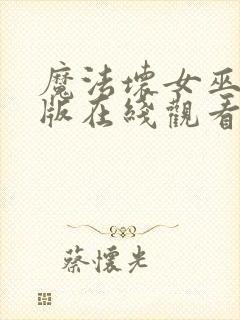 魔法壞女巫
版在綫觀看
蔡懷光